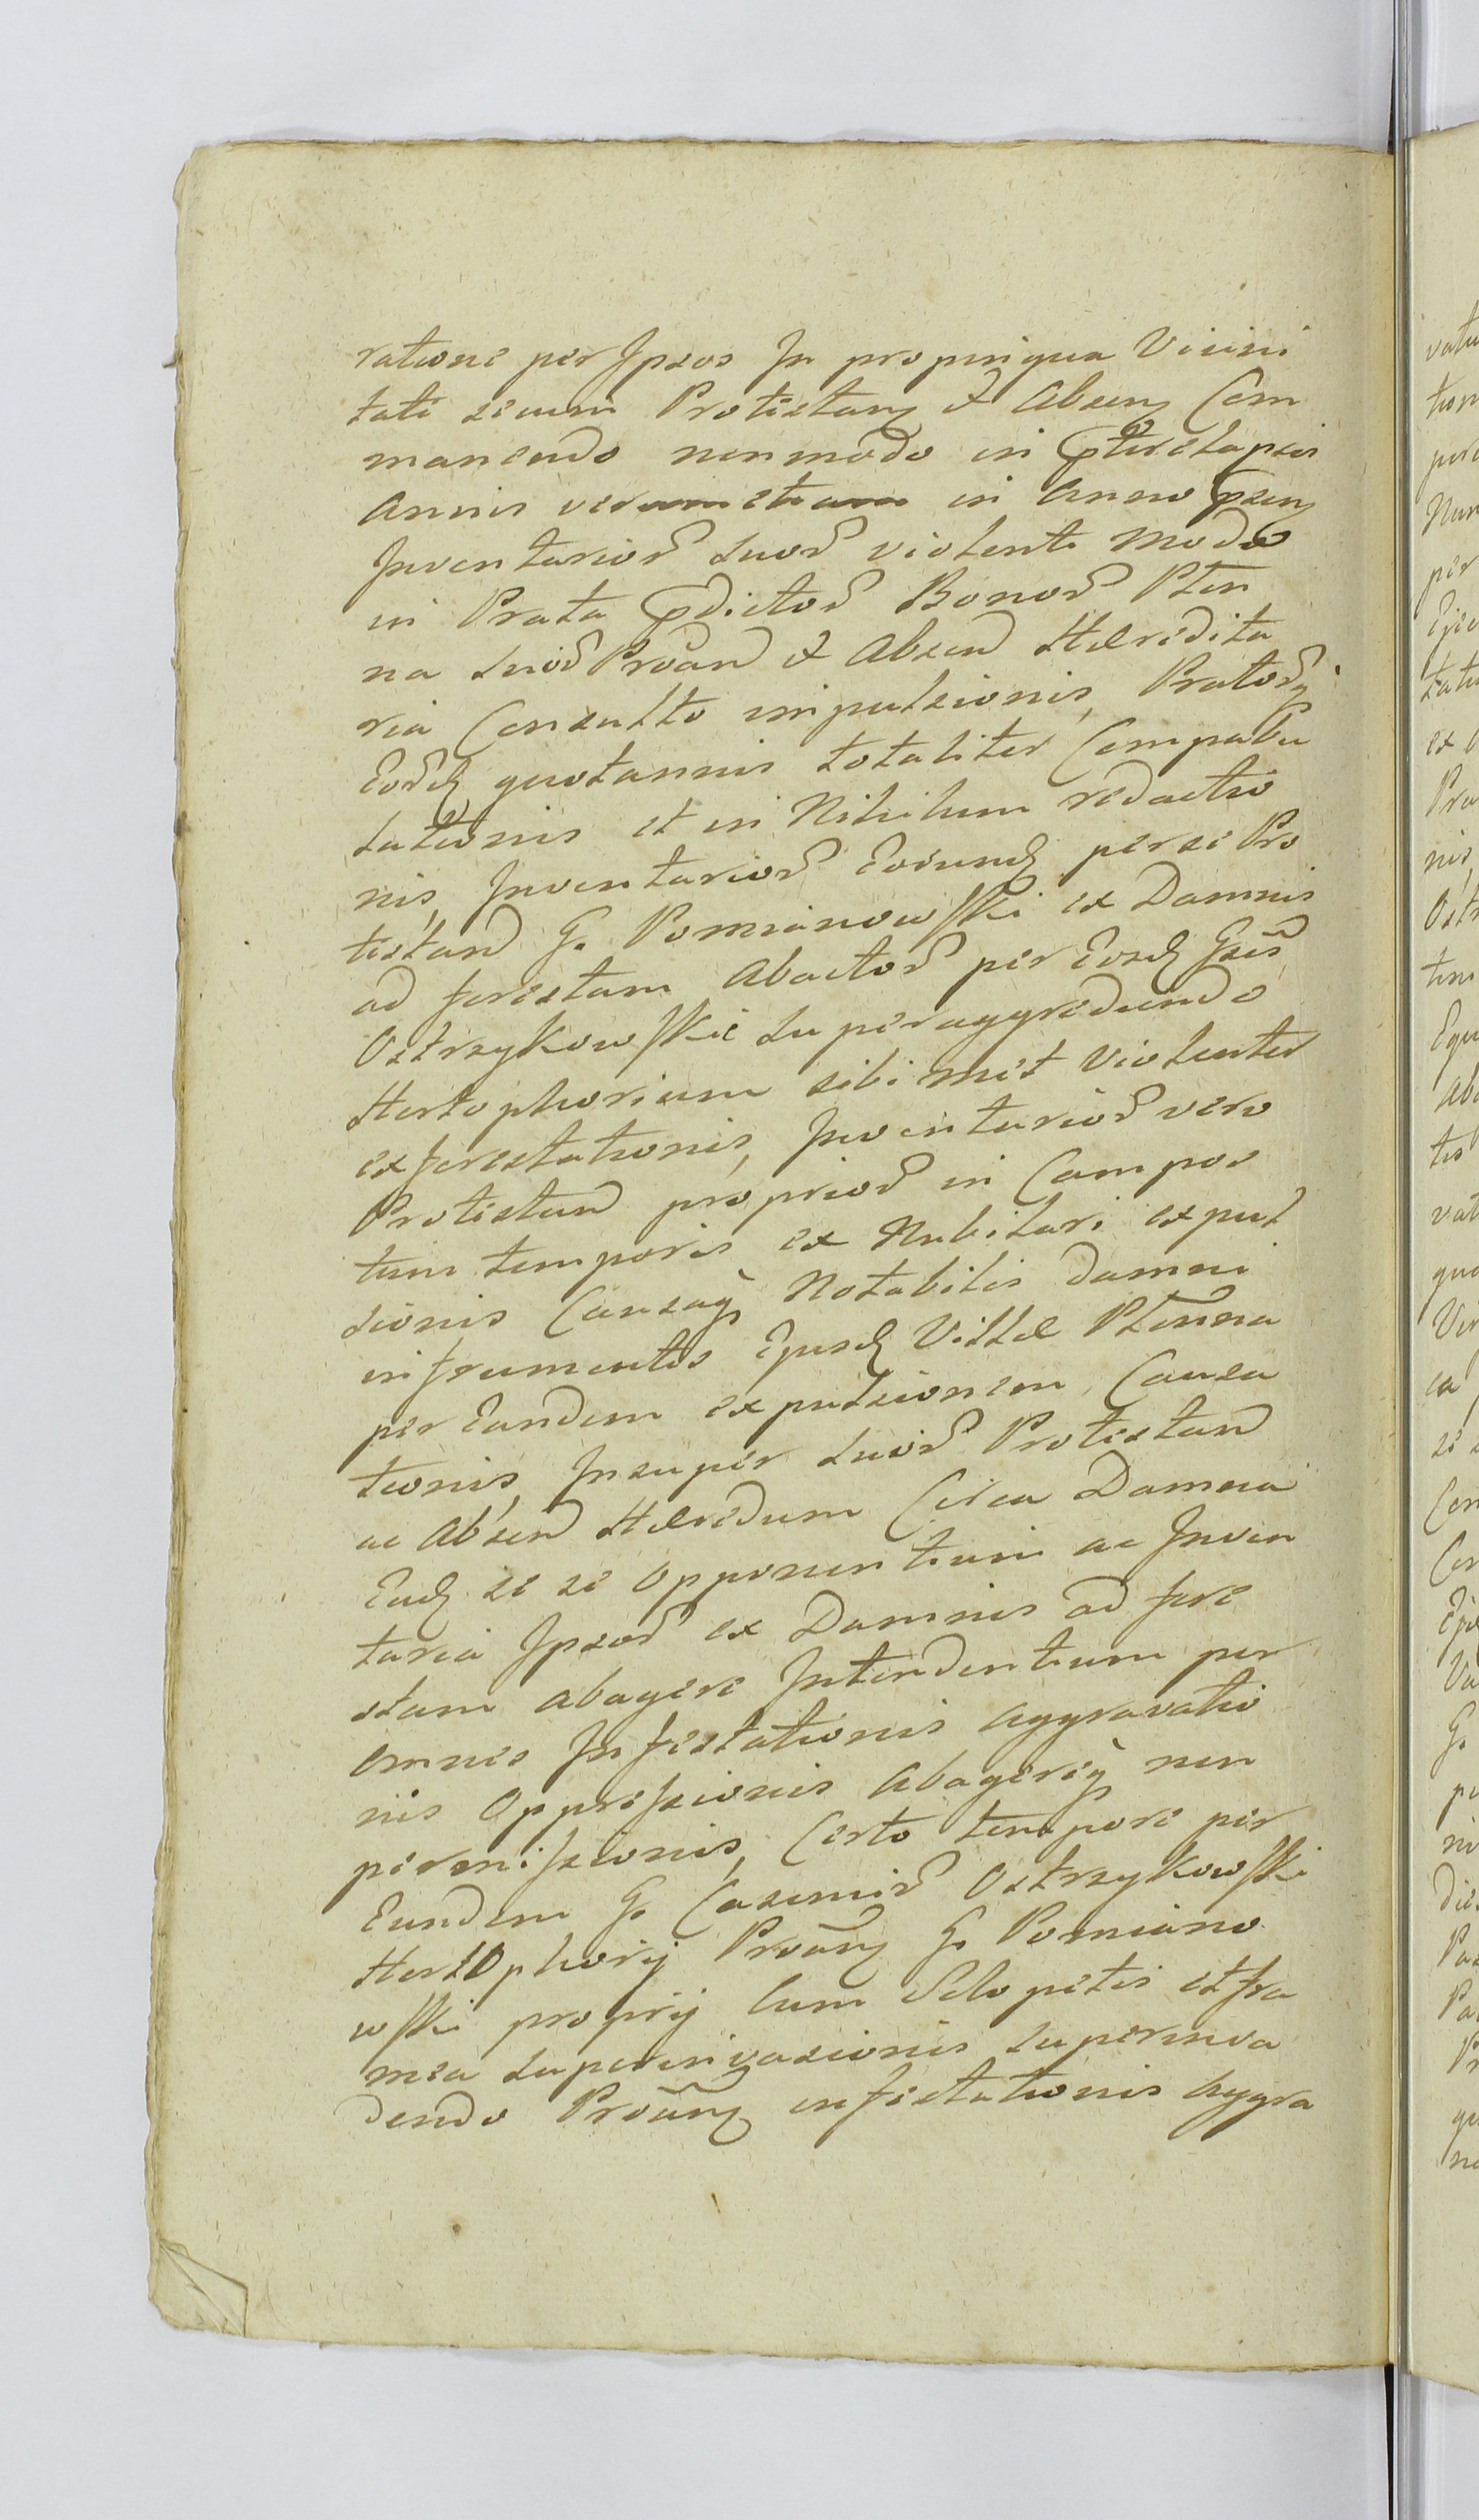 ratione per Ipsos In propinqua Vicini
tate secum Protestan et Absen Com
manendo nonmodo in pterelapsis
Annis verum etiam in Anno psen
Inventarior suor violenti Modo
in Prata pdictor Bonor Plon
na suor Protan et Absen Hæredita
ria Consulto impulsionis, Pratorq
Eord quotannis totaliter Compabu
lationis et in Nihilum redactio
nis, Inventarior Eorund per se Pro
testan G. Pomianowski ex Damnis
ad forestam Abactor per Eosd Gsos
Ostrzykowskie superaggrediendo
Hortophorium sibi met Violenter
exforestationis, Inventarior vero
Protestan proprior in Campos
tunc temporis ex Mubilari expul
sionis Causaq Notabilis Damni
in frumentis Ejusd Villæ Plonna
per Eandem expulsionem Causa
tionis, Insuper suor Protestan
ac Absen Hæredum Circa Damna
Ead se se opponentium ac Inven
taria Ipsor ex Damnis ad fore
stam abagere Intendentium per
omnes Infestationis Aggravatio
nis Oppressionis Abagereq non
permissionis, Certo tempore per
Eundem G. Casimir Ostrzykowski
Hortophorij Protan G. Pomiano
wski proprij Cum Sclopetis et fra
mea superinvasionis superinva
dendo Protan infestationis Aggra